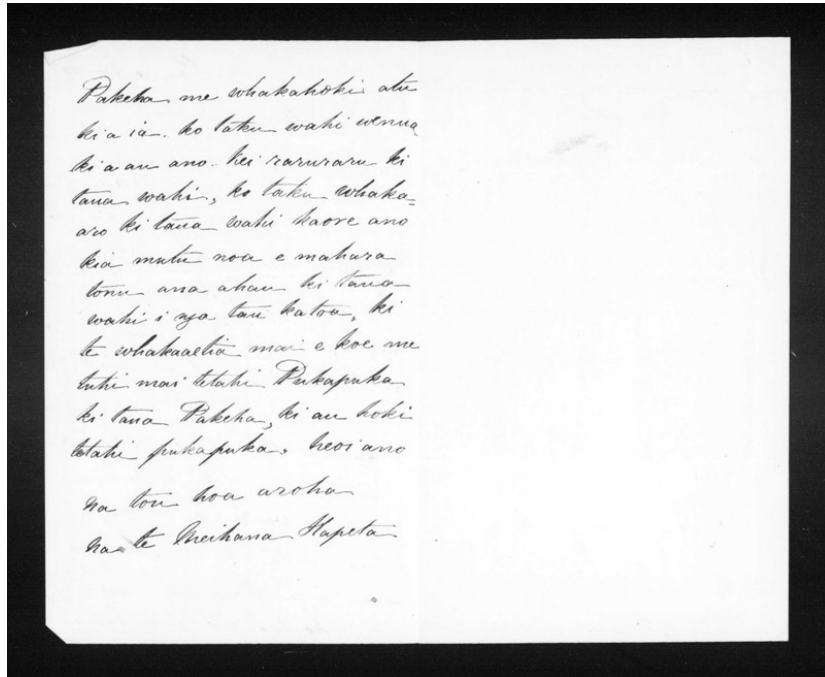 Pakeha me whakahoki atu
ki a ia. ko taku wahi wenua
ki a au ano. kei raruraru ki
taua wahi, ko taku whaka=
aro ki taua wahi kaore ano
kia mutu noa e mahara
tonu ana ahau ki taua
wahi i nga tau katoa, ki
te whakaaetia mai e koe me
tuhi mai tetahi Pukapuka
ki taua Pakeha, ki au hoki
tetahi pukapuka. heoi ano
na tou hoa aroha
na te Meihana Hapeta